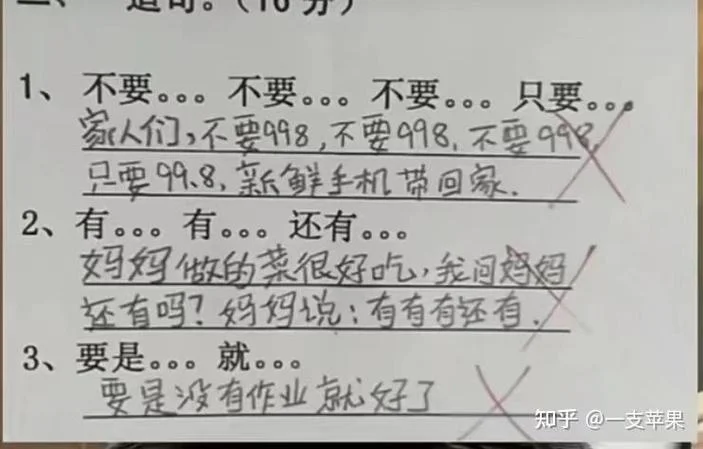 一、 造句。（16 分）
1、不要。。。不要。。。不要。。。只要。。。
家人们，不要998，不要998，不要998，
只要99.8，新鲜手机带回家．
2、有。。。有。。。还有。。。
妈妈做的菜很好吃，我问妈妈
还有吗？妈妈说：有有有还有．
3、要是。。。就。。。
要是没有作业就好了
知乎 @一支苹果